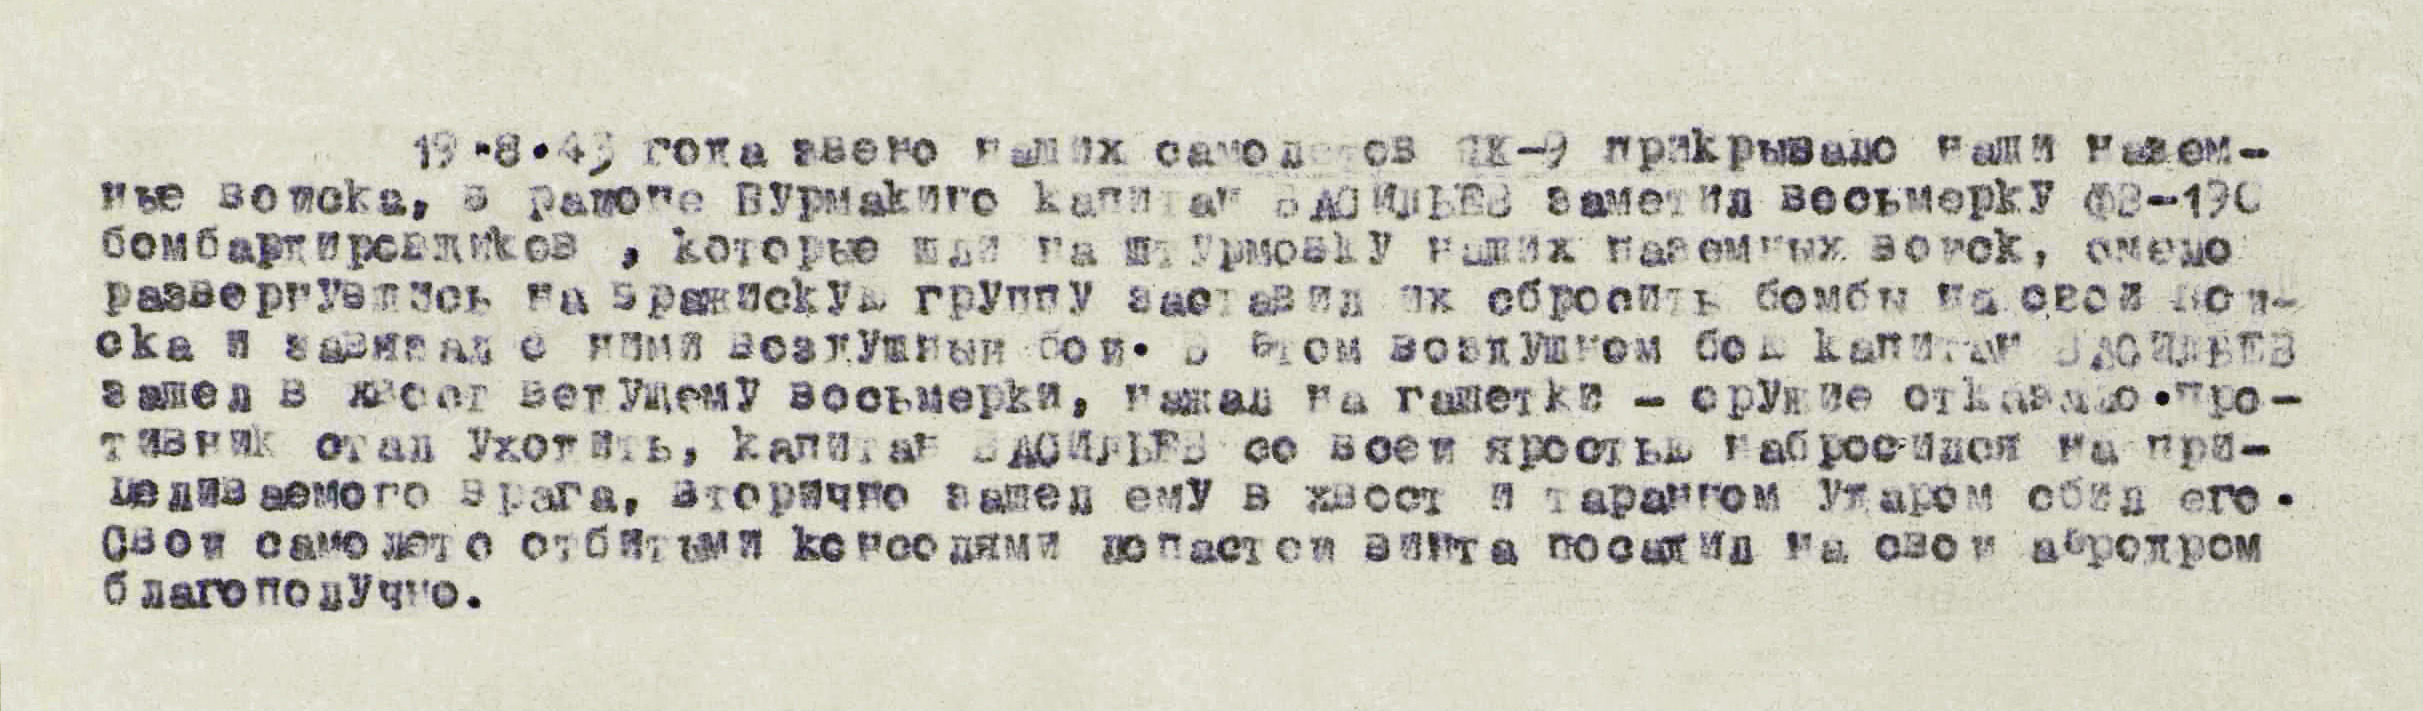 19.8.43 года звено наших самолетов ЯК-9 прикрывало наши назем-
ные войска, в районе Бурмакино капитан ВАСИЛЬЕВ заметил восьмерку ФВ-190
бомбардировщиков , которые шли на штурмовку наших наземных войск, смело
развернувшись на вражискую группу заставил их сбросить бомбы на свои вой-
ска и завязал с ними воздушный бой. В этом воздушном бою капитан ВАСИЛЬЕВ
зашел в хвост ведущему восьмерки, нажал на гашетки - оружие отказало.Про-
тивник стал уходить, капитан ВАСИЛЬЕВ со всей яростью набросился на при-
целиваемого врага, вторично зашел ему в хвост и таранном ударом сбил его.
Свой самолет с отбитыми консолями лопастей винта посадил на свой аэродром
благополучно.